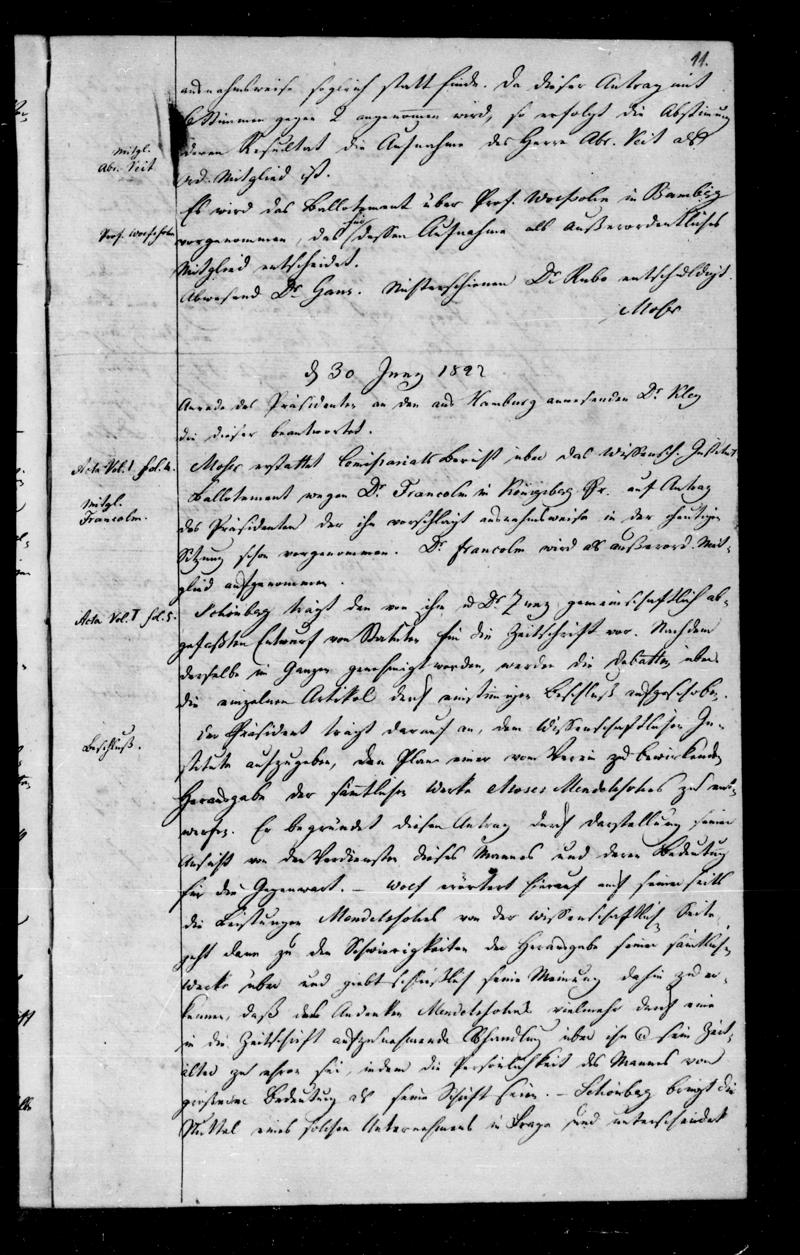 11.
ausnahmsweise sogleich statt finde. Da dieser Antrag mit
6 Stimmen gegen 2 angenommen wird, so erfolgt die Abstimung
deren Resultat die Aufnahme des Herrn Abr. Veit als
Mitgl.
Abr. Veit
ord. Mitglied ist.
Es wird das Ballotement über Prof. in Bamberg
Prof.
vorgenommen, das für dessen Aufnahme als Außerordentliches
Mitglied entscheidet.
Abwesend Dr Gans. Nichterschienen Dr Rubo entschuldigt.
Moser
d 30 Juny 1822
Anrede des Präsidenten an den aus Hamburg anwesenden Dr Kley
die dieser beantwortet.
Acta Vol. I fol. 4.
Moser erstattet Comissariats Bericht über das Wissensch. Institut
Ballotement wegen Dr Francolm in Königsberg Pr. auf Antrag
Mitgl.
Francolm.
des Präsidenten der ihn vorschlägt ausnahmsweise in der heutigen
Sitzung schon vorgenommen. Dr Francolm wird als außerord. Mit-
glied aufgenommen.
Acta Vol. I fol. 5.
Schönberg trägt den von ihm & Dr Zunz gemeinschaftlich ab-
gefaßten Entwurf von Statuten für die Zeitschrift vor. Nachdem
derselbe im Ganzen genehmigt worden, werden die Debatten über
die einzelnen Artikel durch einstimmigen Beschluß aufgeschoben.
Beschluß.
Der Präsident trägt darauf an, dem Wissenschaftlichen In-
stitute aufzugeben, den Plan einer vom Verein zu bewirkenden
Herausgabe der sämtlichen Werke Moses Mendelsohns zu ent-
werfen. Er begründet diesen Antrag durch Darstellung seiner
Ansicht von den Verdiensten dieses Mannes und deren Bedeutung
für die Gegenwart. – Wolf erörtert hierauf auch seiner seits
die Leistungen Mendelsohns von der wissenschaftlich. Seite,
geht dann zu den Schwierigkeiten der Herausgabe seiner sämtlichen
Werke über und giebt schließlich seine Meinung dahin zu er-
kennen, daß das Andenken Mendelsohns vielmehr durch eine
in die Zeitschrift aufzunehmende Abhandlung über ihn & sein Zeit-
alter zu ehren sei, indem die Persönlichkeit des Mannes von
größerer Bedeutung als seine Schriften seien. – Schönberg bringt die
Mittel eines solchen Unternehmens in Frage und unterscheidet